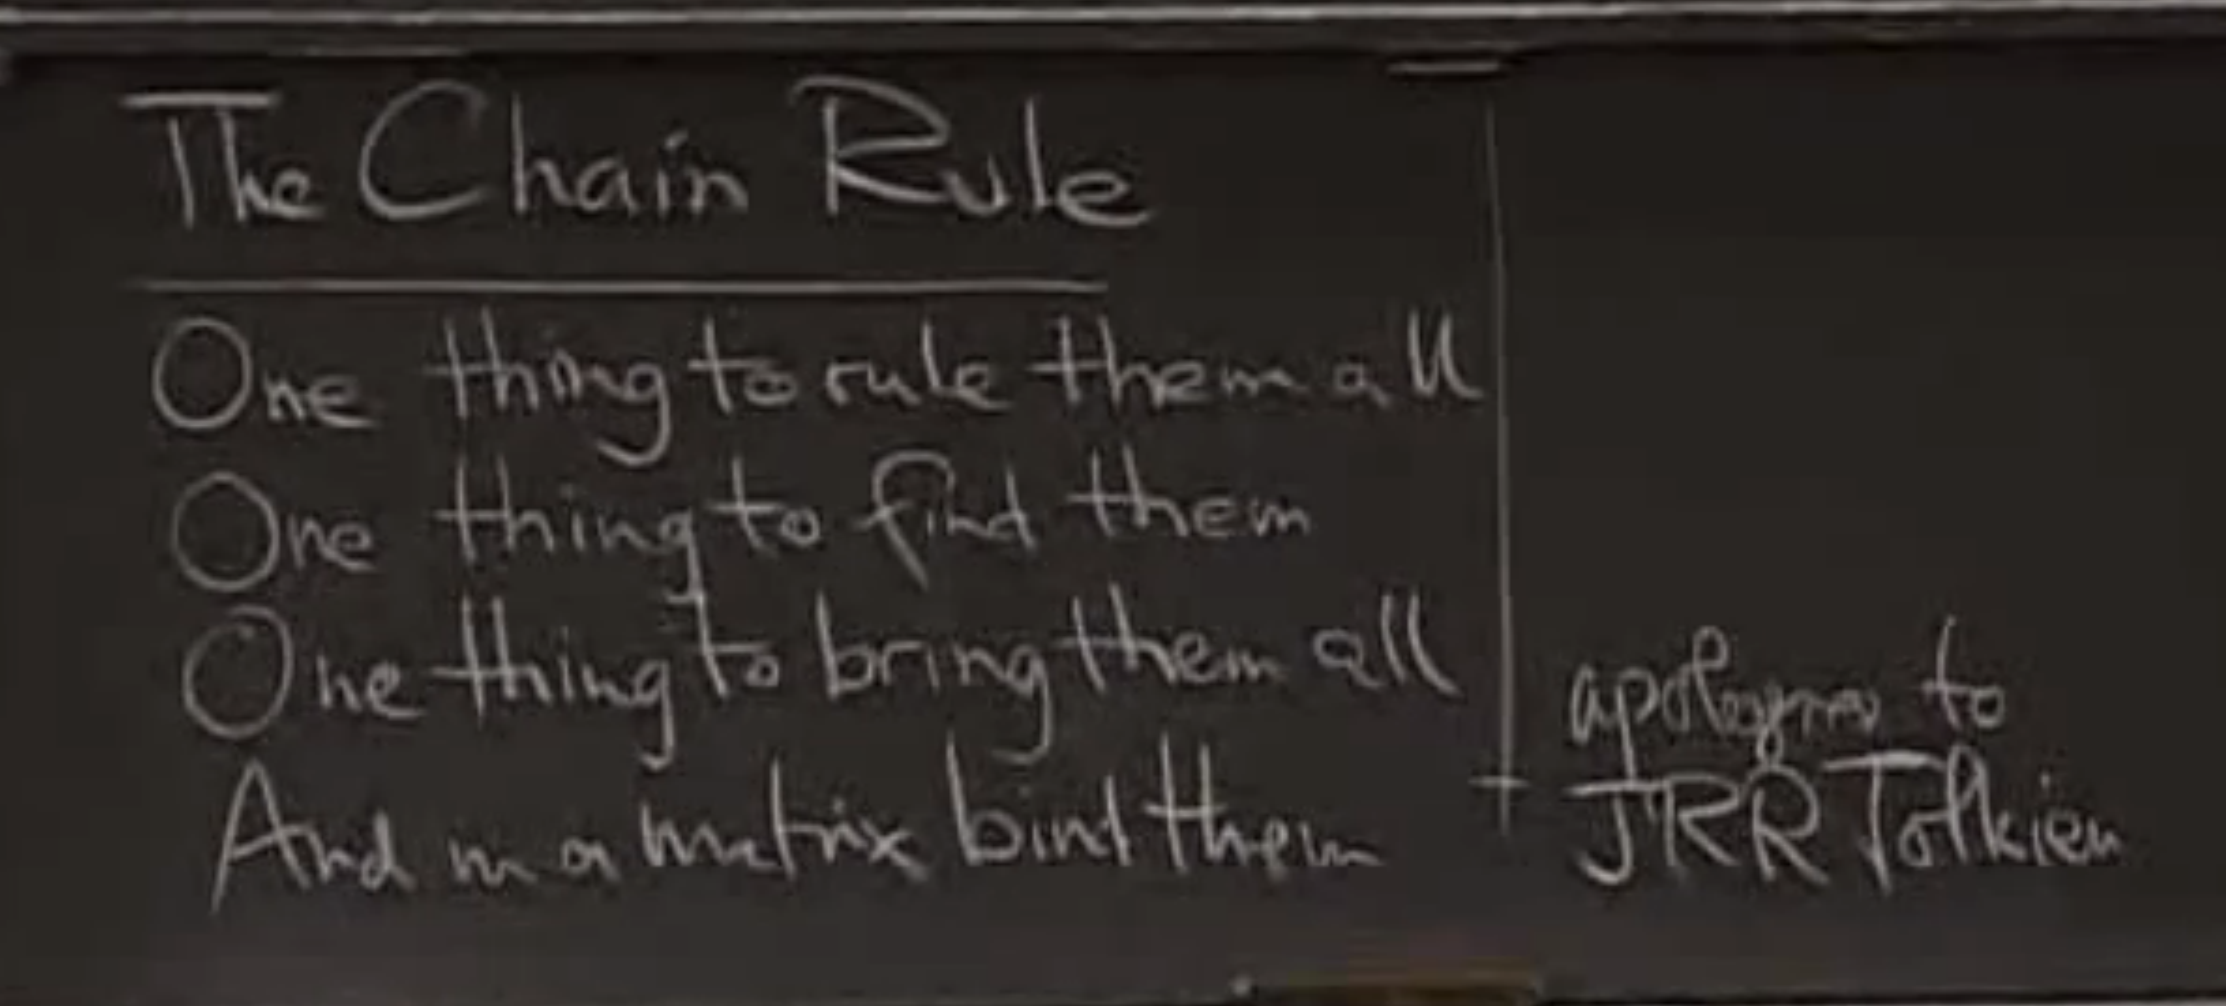 The Chain Rule
One thing to rule them all
One thing to find them
One thing to bring them all
And in a matrix bind them
apologies to
JRR Tolkien